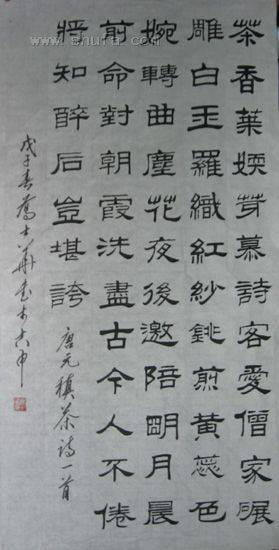 茶香葉媆芽慕詩客愛僧家碾
雕白玉羅織紅紗銚煎黃蕊色
婉轉曲塵花夜後邀陪明月晨
前命對朝霞洗盡古今人不倦
將知醉后豈堪誇
唐元稹茶诗一首
戊子春